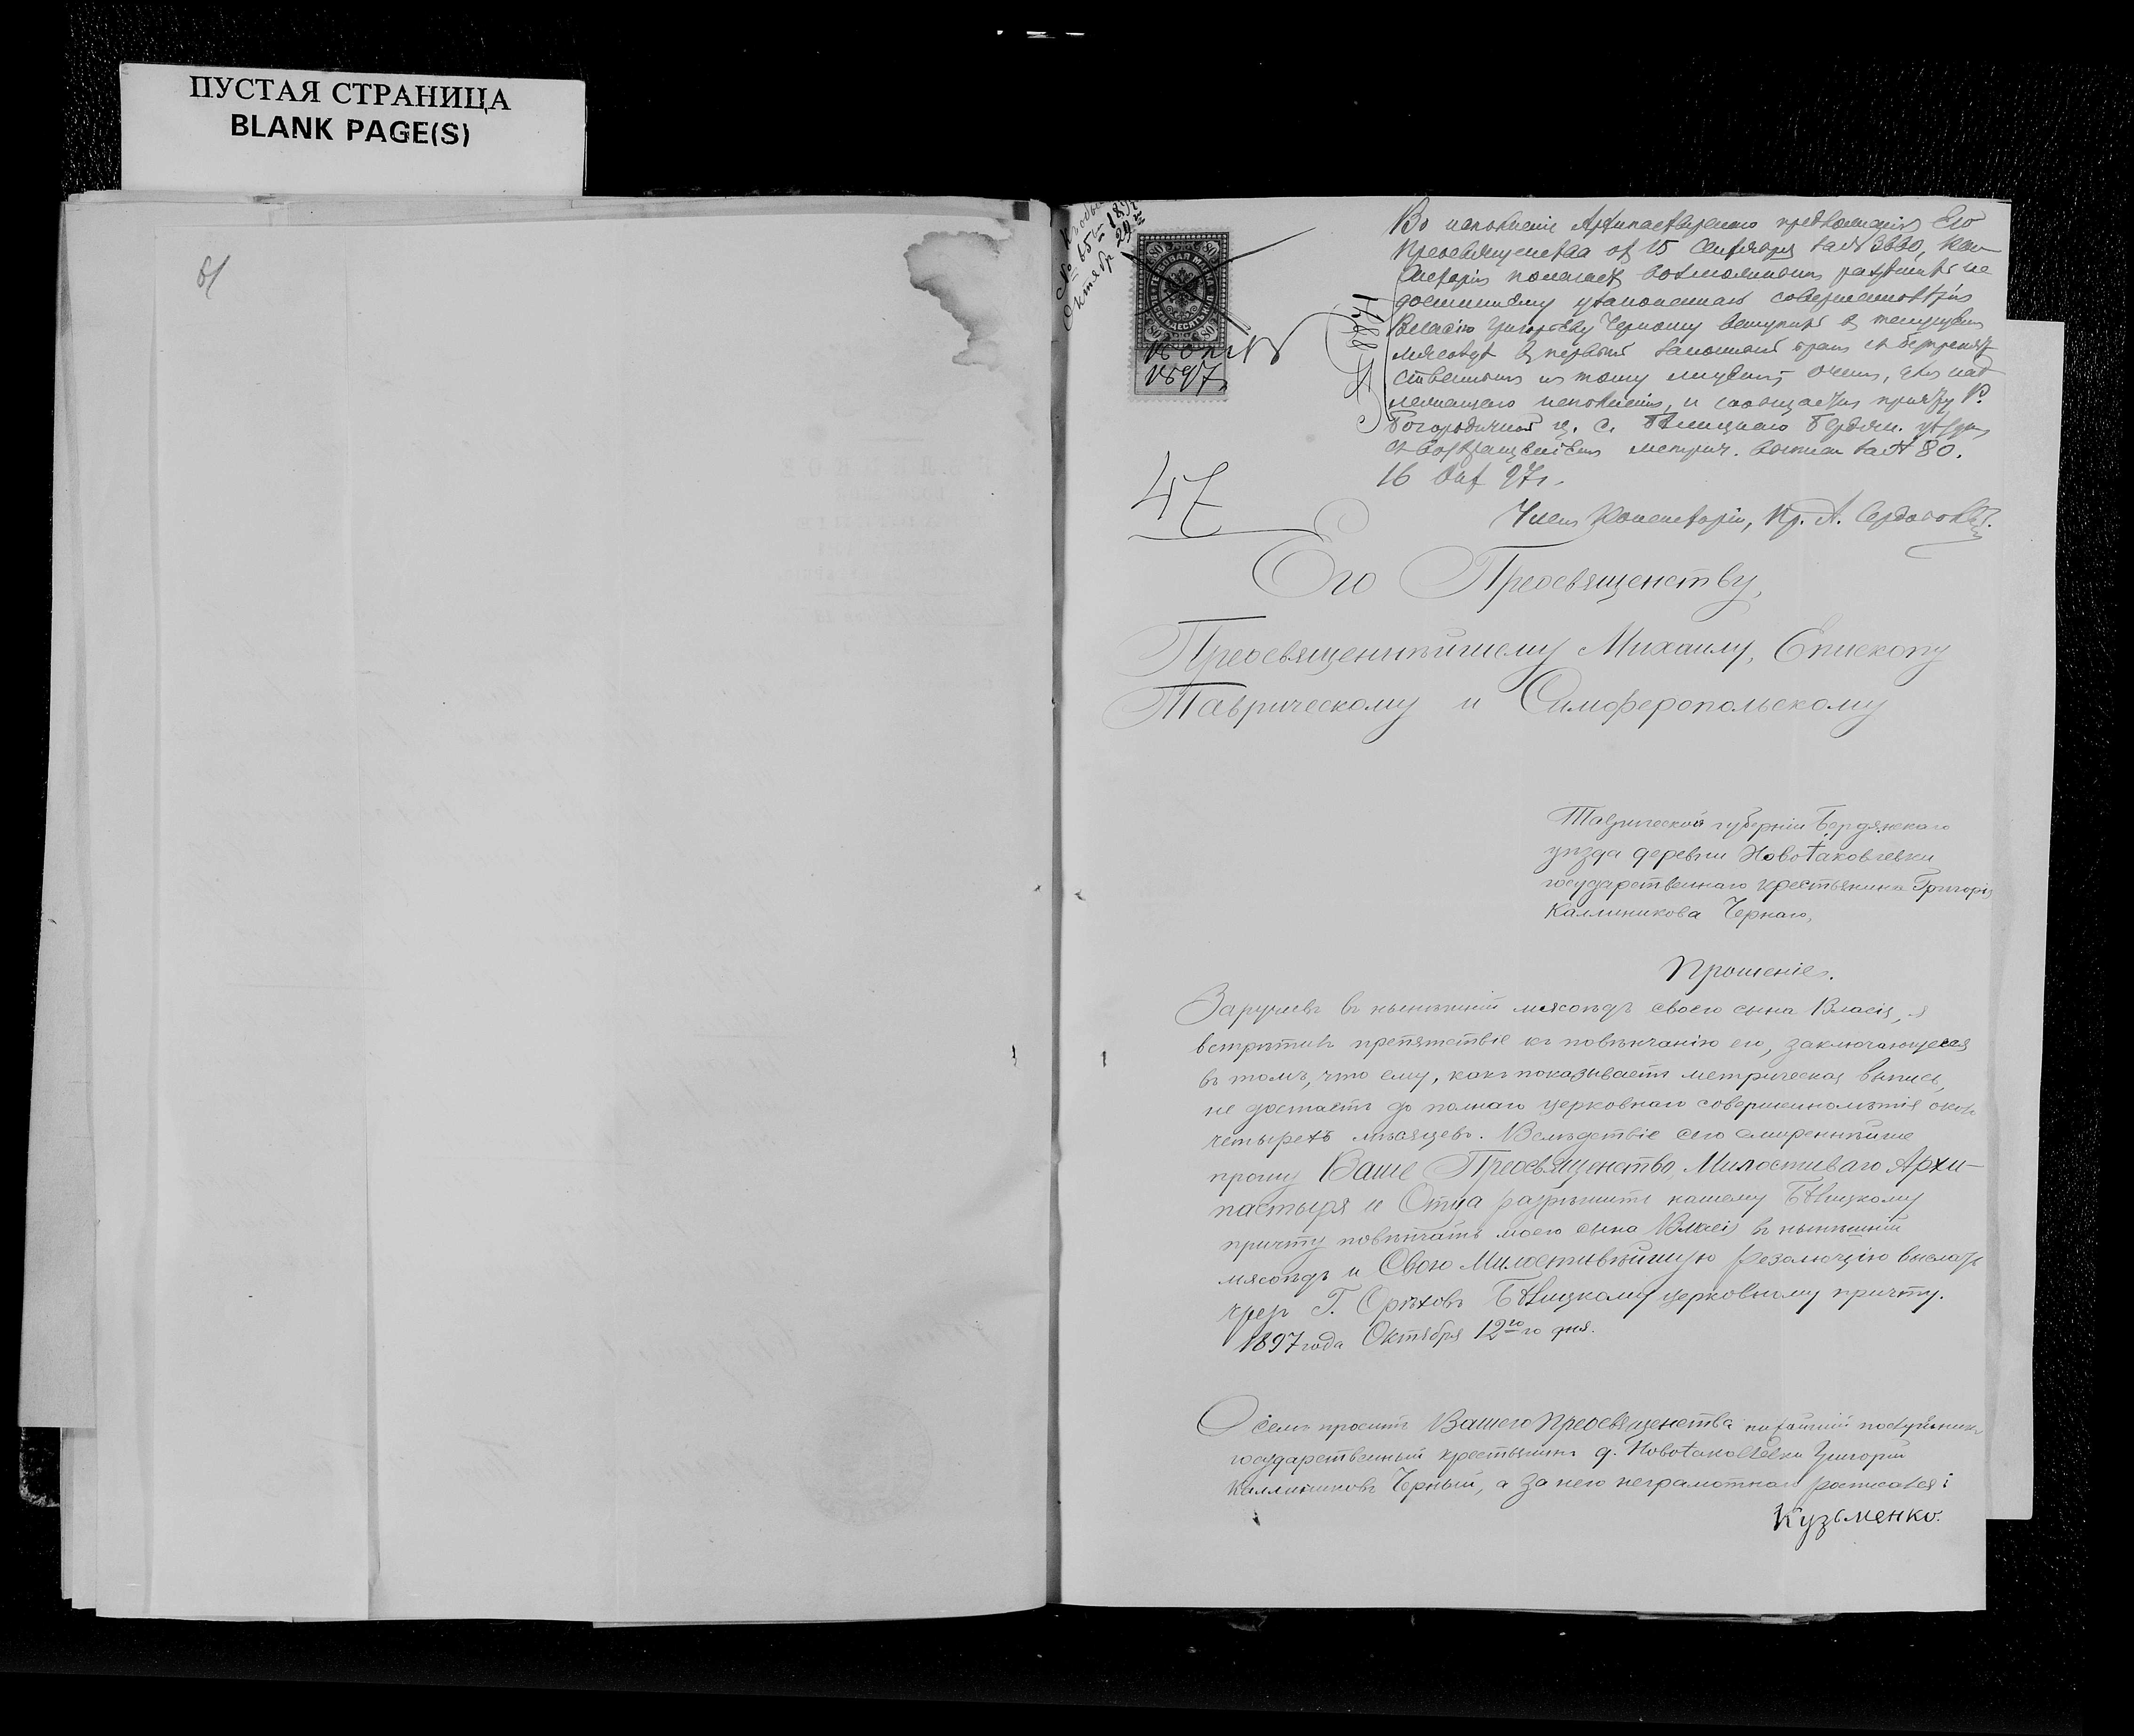 ПУСТАЯ СТРАНИЦА
BLANK PAGE(S)
№ 65 1897
Октябр 29
80 80
ГЕРБОВАЯ МАРКА
80 80
1897
Во исполненіе Архипастырскаго предложенія Его
Преосвященства от 15 Октября за № 3630, Кон-
систорія полагаетъ возможнымъ разрѣшить не
достигшему узаконеннаго совершеннолѣтія
Власію Григорьеву Черному вступить въ текущемъ
мясоѣдѣ въ первый законный бракъ съ безпрепят
ственнымъ къ тому лицемъ, о чемъ, для над
лежащаго исполненія, и сообщается причту Р.
Богородичной ц. с. Бѣлицкаго Бердян. уѣзда,
съ возвращеніемъ метрич. выписи за № 80.
16 Окт 97 г.
47
Членъ Консисторіи, Пр. А.
Его Преосвященству,
Преосвященнѣйшему Михаилу, Епископу
Таврическому и Симферопольскому
Таврической губерніи Бердянскаго
уѣзда деревни НовоІаковлевки
государственнаго крестьянина Григорія
Каллиникова Чернаго,
Прошеніе.
Заручивъ въ нынѣшній мясоѣдъ своего сына Власія, я
встрѣтилъ препятствіе къ повѣнчанію его, заключающееся
въ томъ, что ему, какъ показываетъ метрическая выпись,
не достаетъ до полнаго церковнаго совершеннолѣтія около
четырехъ мѣсяцевъ. Вслѣдствіе сего смиреннѣйше
прошу Ваше Преосвященство, Милостиваго Архи-
пастыря и Отца разрѣшить нашему Бѣлицкому
причту повѣнчать моего сына Власія въ нынѣшній
мясоѣдъ и Свою Милостивѣйшую резолюцію выслать
чрезъ Г. Орѣховъ Бѣлицкому церковному причту.
1897 года Октября 12го дня.
О семъ проситъ Вашего Преосвященства нижайшій послушникъ
государственный крестьянинъ д. НовоІаковлевки Григорій
Каллиниковъ Черный, а за него неграмотнаго росписался
Кузьменко.